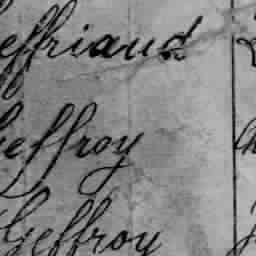 Geffriaud
Geffroy
Geffroy